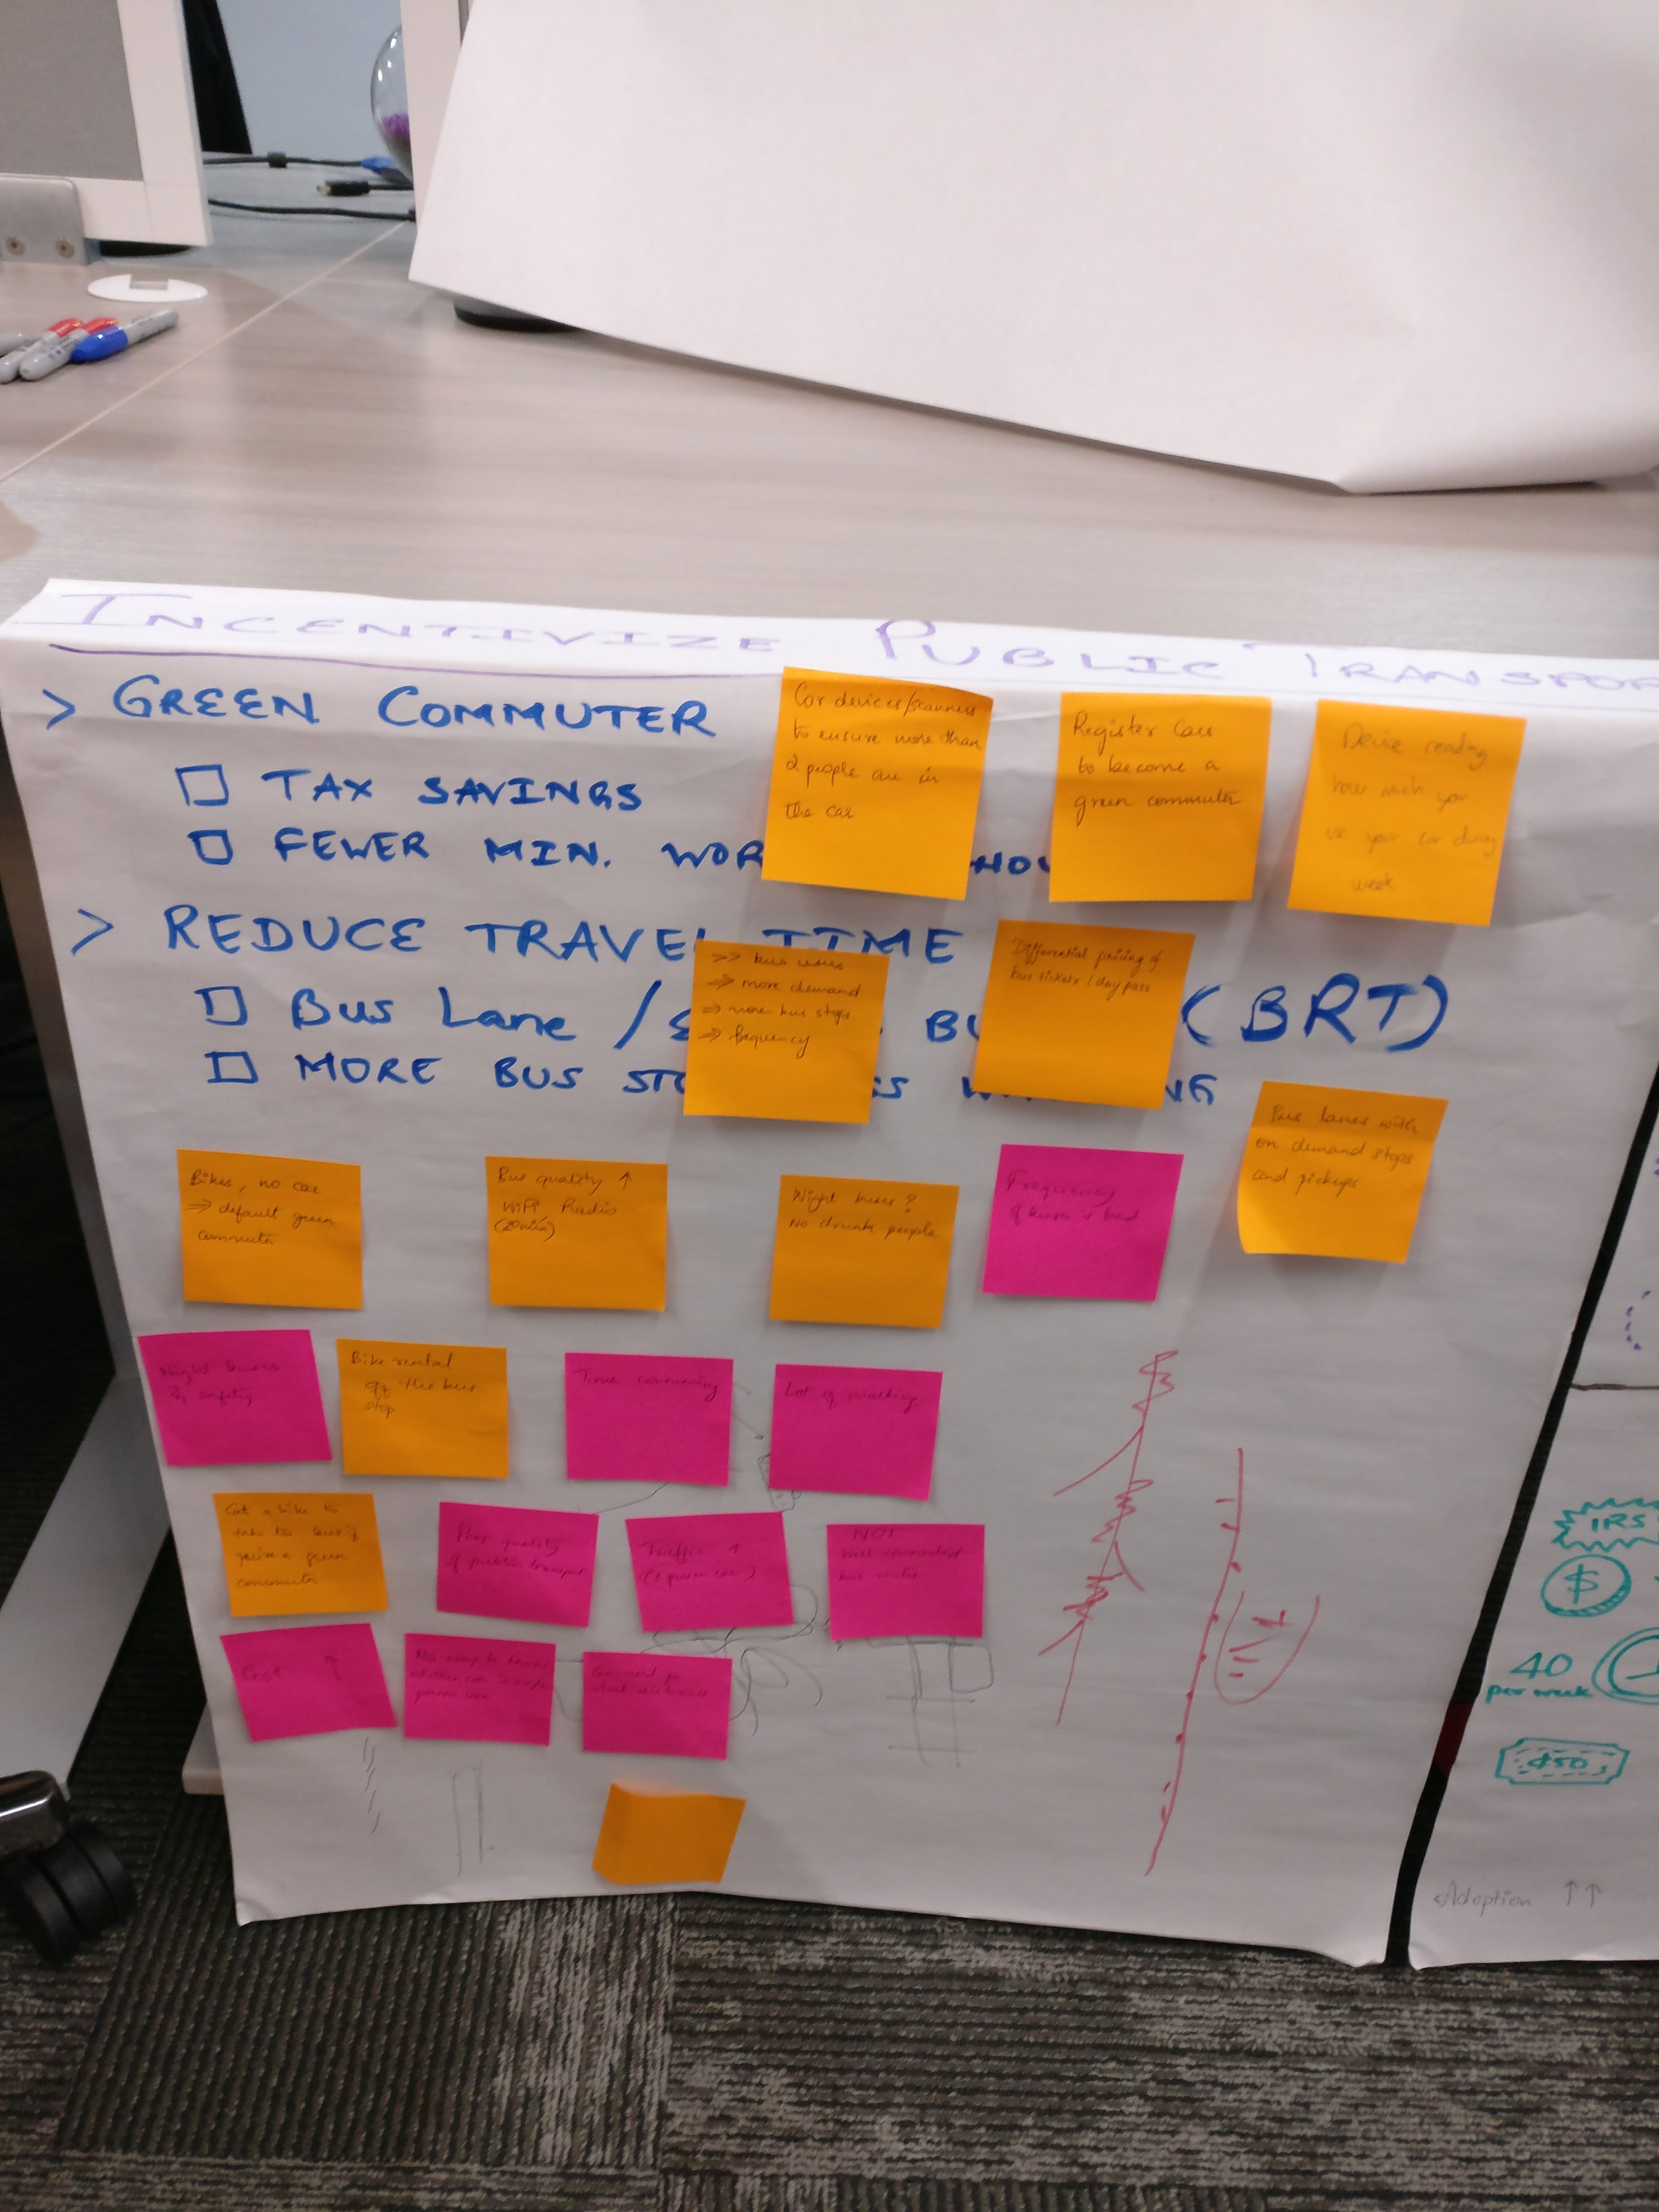 INCENTIVIZE PUBLIC TRANSPOR
> GREEN COMMUTER
TAX SAVINGS
FEWER MIN. WOR HOU
> REDUCE TRAVEL TIME
Bus Lane / BU (BRT)
MORE BUS STO SS W NG
Car devices/scanners
to ensure more than
2 people are in
the car
Register Cars
to become a
green commuter
Device reading
how much you
use your car during
week
>> bus users
⇒ more demand
⇒ more bus stops
⇒ frequency
Differential pricing of
bus tickets / day pass
Bus lanes with
on demand stops
and pickups
Bikes, no car
⇒ default green
commuter
Bus quality ↑
WiFi, Radio
Night buses?
No drunk people
Frequency
of buses v bad
Night buses
& safety
Bike rental
off the bus
stop
Time consuming
Lot of walking
Get a bike to
green
commuter
Poor quality
of public transport
Traffic ↑
NOT
well connected
bus routes
Cost ↑
No way to know
whether car is single
person use
Car used for
short distances
IRS
$
40
per week
$50
Adoption ↑↑